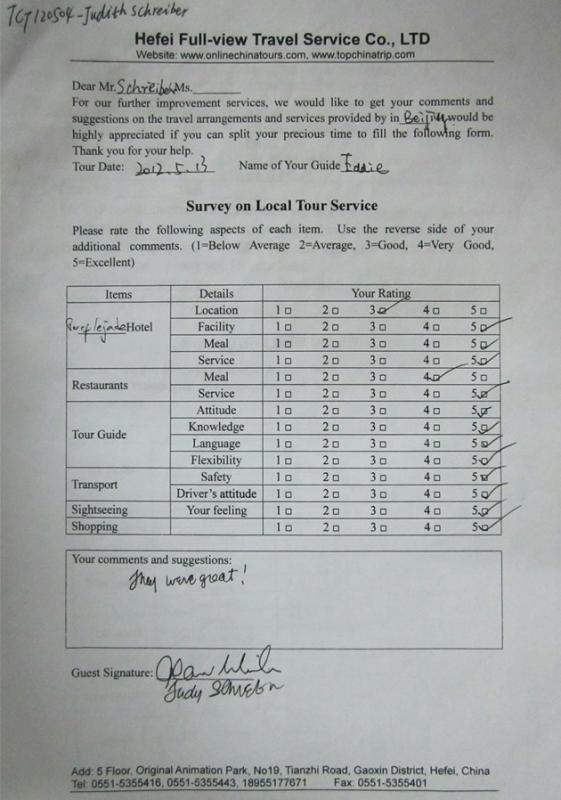 TCT120504-Judith Schreiber
Hefei Full-view Travel Service Co., LTD
Website: www.onlinechinatours.com, www.topchinatrip.com
Dear Mr. Schreiber Ms.
For our further improvement services, we would like to get your comments and
suggestions on the travel arrangements and services provided by in Beijing would be
highly appreciated if you can split your precious time to fill the following form.
Thank you for your help.
Tour Date: 2012.5.13 Name of Your Guide Eddie
Survey on Local Tour Service
Please rate the following aspects of each item. Use the reverse side of your
additional comments. (1=Below Average 2=Average, 3=Good, 4=Very Good,
5=Excellent)
Items Details Your Rating
Hotel Location 1 □ 2 □ 3 ☑ 4 □ 5 □
Facility 1 □ 2 □ 3 □ 4 □ 5 ☑
Meal 1 □ 2 □ 3 □ 4 □ 5 ☑
Service 1 □ 2 □ 3 □ 4 □ 5 ☑
Restaurants Meal 1 □ 2 □ 3 □ 4 ☑ 5 □
Service 1 □ 2 □ 3 □ 4 □ 5 ☑
Tour Guide Attitude 1 □ 2 □ 3 □ 4 □ 5 ☑
Knowledge 1 □ 2 □ 3 □ 4 □ 5 ☑
Language 1 □ 2 □ 3 □ 4 □ 5 ☑
Flexibility 1 □ 2 □ 3 □ 4 □ 5 ☑
Transport Safety 1 □ 2 □ 3 □ 4 □ 5 ☑
Driver's attitude 1 □ 2 □ 3 □ 4 □ 5 ☑
Sightseeing Your feeling 1 □ 2 □ 3 □ 4 □ 5 ☑
Shopping 1 □ 2 □ 3 □ 4 □ 5 ☑
Your comments and suggestions:
They were great!
Guest Signature:
Judy
Add: 5 Floor, Original Animation Park, No19, Tianzhi Road, Gaoxin District, Hefei, China
Tel: 0551-5355416, 0551-5355443, 18955177671 Fax: 0551-5355401